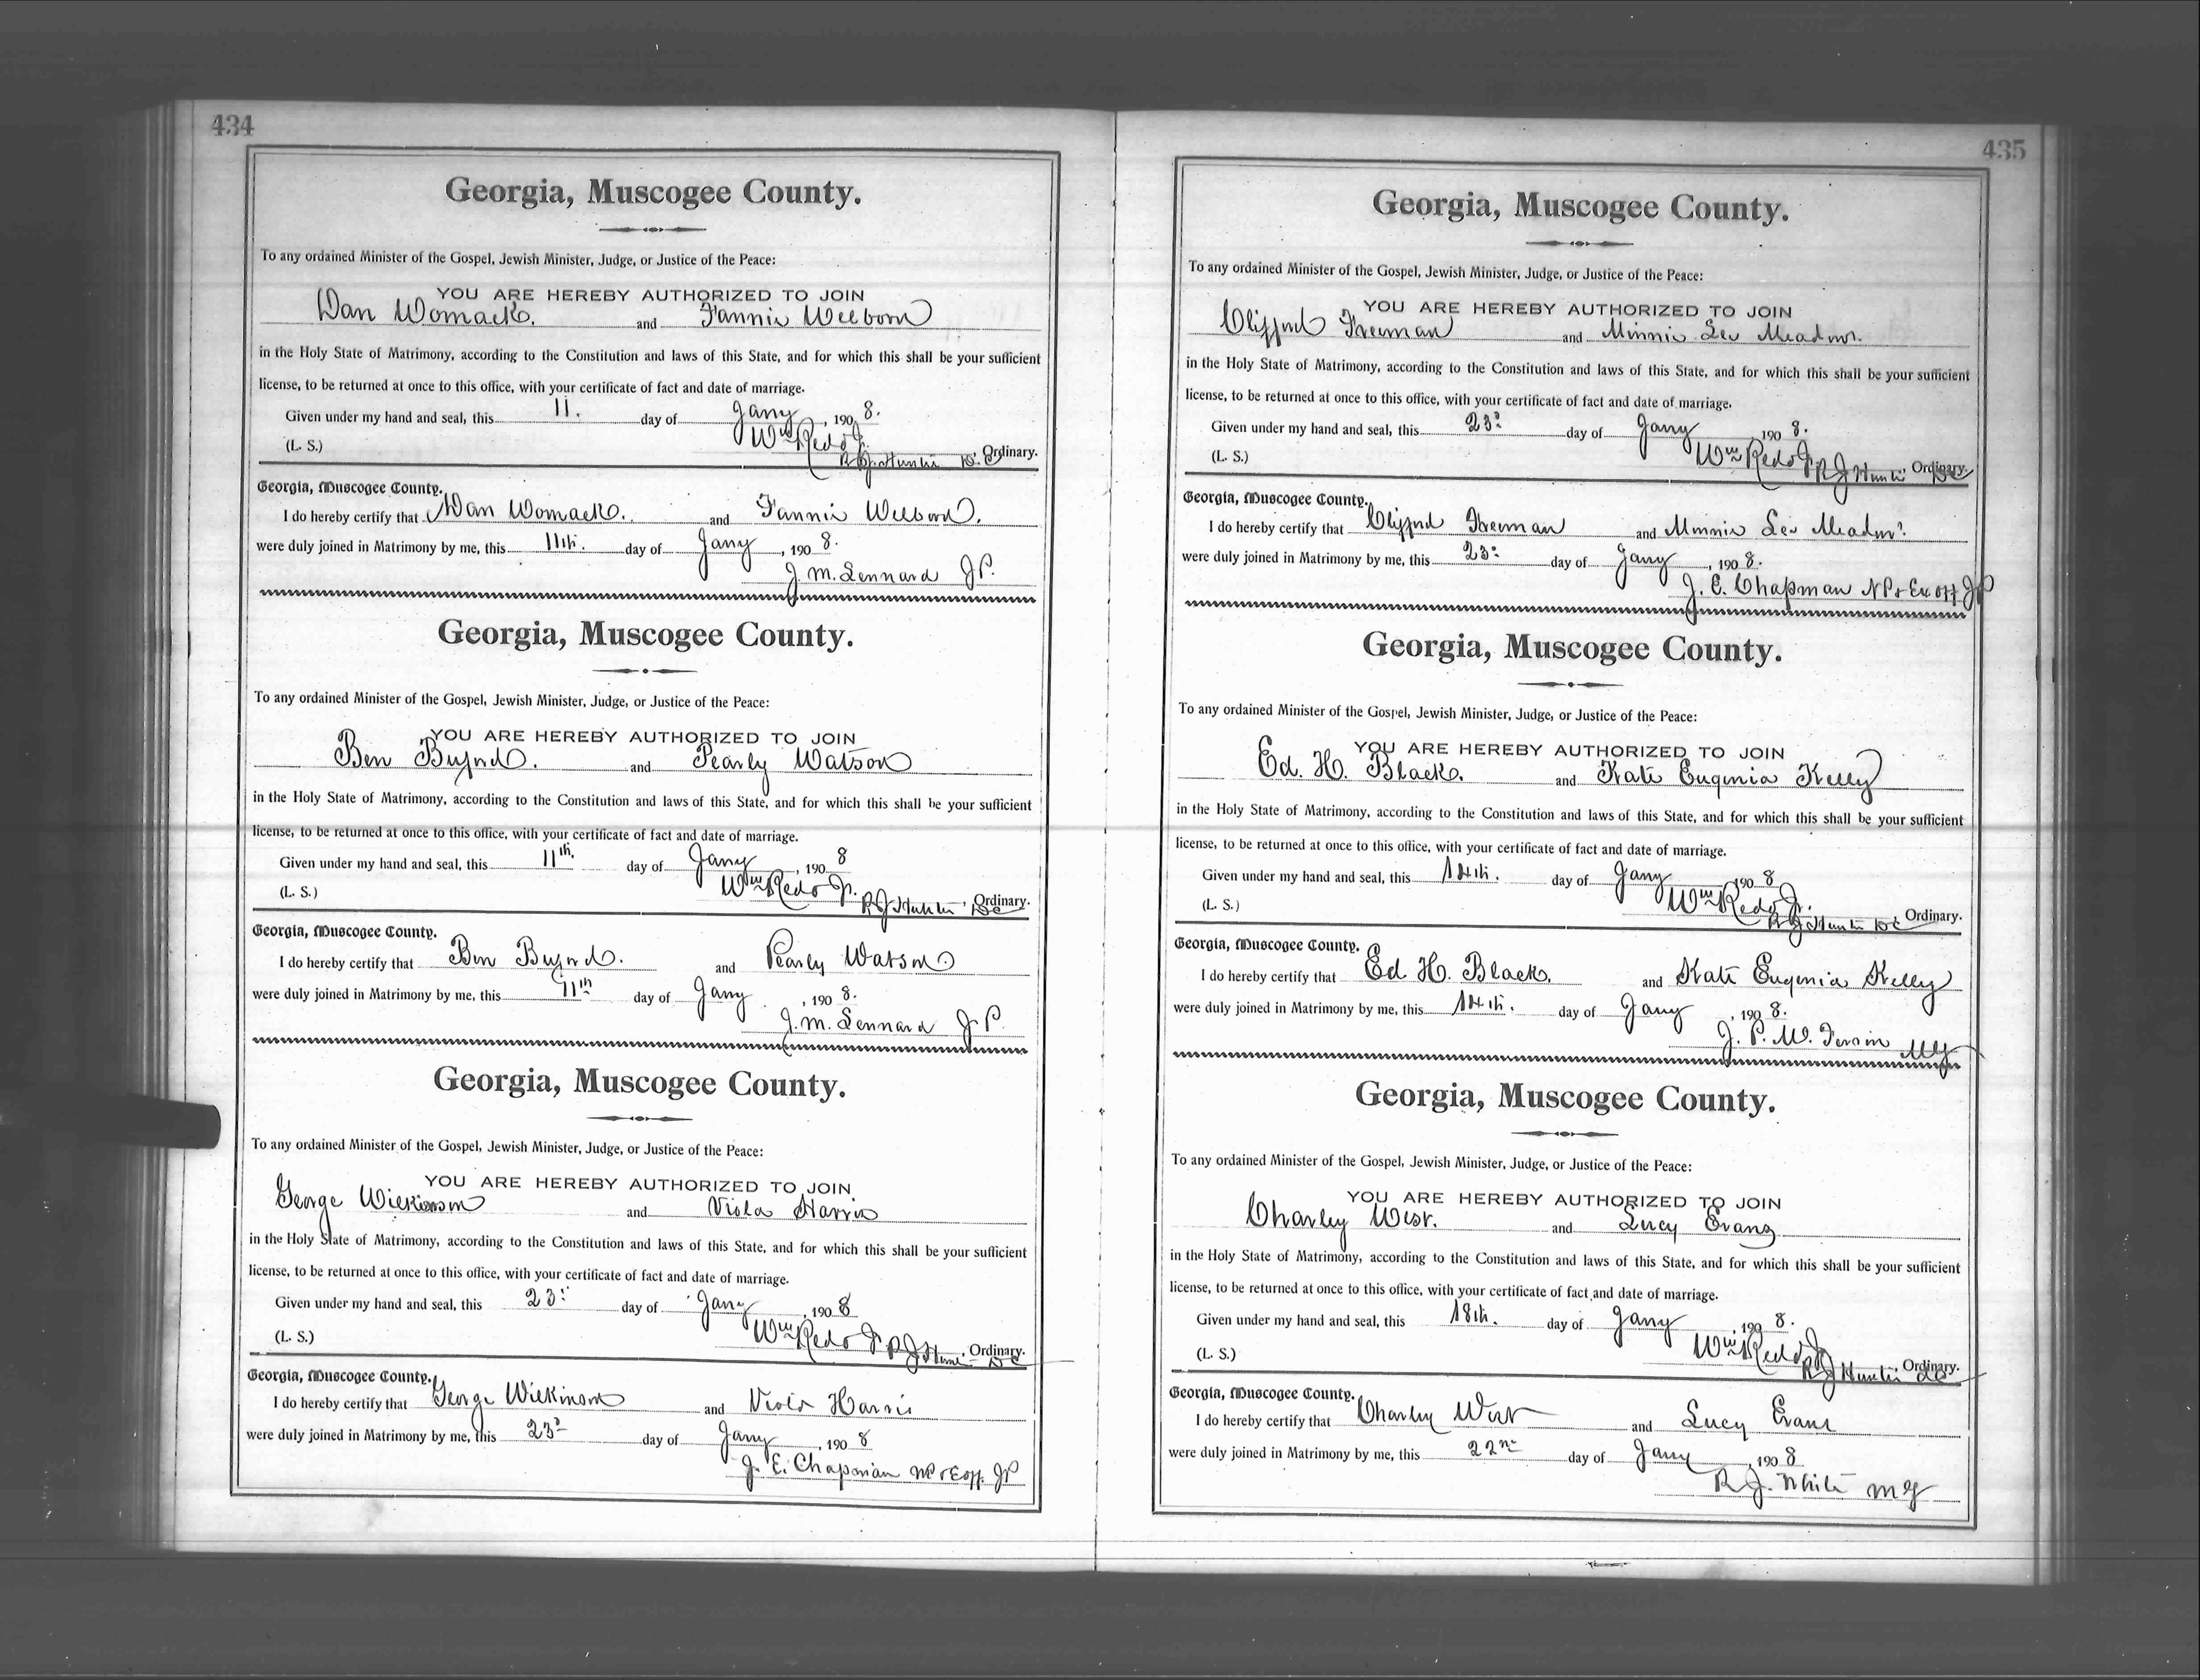 434
Georgia, Muscogee County.
To any ordained Minister of the Gospel, Jewish Minister, Judge, or Justice of the Peace:
YOU ARE HEREBY AUTHORIZED TO JOIN
Dan Womack. and Fannie Welborn
in the Holy State of Matrimony, according to the Constitution and laws of this State, and for which this shall be your sufficient
license, to be returned at once to this office, with your certificate of fact and date of marriage.
Given under my hand and seal, this 11. day of Jany, 1908.
Wm Redd Jr.
(L. S.) R J Hunter D.C. Ordinary.
Georgia, Muscogee County.
I do hereby certify that Dan Womack. and Fannie Welborn.
were duly joined in Matrimony by me, this 11th. day of Jany, 1908.
J. M. Lennard JP.
Georgia, Muscogee County.
To any ordained Minister of the Gospel, Jewish Minister, Judge, or Justice of the Peace:
YOU ARE HEREBY AUTHORIZED TO JOIN
Ben Byrd. and Pearly Watson
in the Holy State of Matrimony, according to the Constitution and laws of this State, and for which this shall be your sufficient
license, to be returned at once to this office, with your certificate of fact and date of marriage.
Given under my hand and seal, this 11th. day of Jany, 1908
Wm Redd Jr.
(L. S.) R J Hunter DC Ordinary.
Georgia, Muscogee County.
I do hereby certify that Ben Byrd. and Pearly Watson
were duly joined in Matrimony by me, this 11th day of Jany, 1908.
J. M. Lennard J.P.
Georgia, Muscogee County.
To any ordained Minister of the Gospel, Jewish Minister, Judge, or Justice of the Peace:
YOU ARE HEREBY AUTHORIZED TO JOIN
George Wilkinson and Viola Harris
in the Holy State of Matrimony, according to the Constitution and laws of this State, and for which this shall be your sufficient
license, to be returned at once to this office, with your certificate of fact and date of marriage.
Given under my hand and seal, this 23: day of Jany, 1908
Wm Redd Jr R J Hunter DC
(L. S.) Ordinary.
Georgia, Muscogee County.
I do hereby certify that George Wilkinson and Viola Harris
were duly joined in Matrimony by me, this 23 day of Jany, 1908
J. E. Chapman NP & Ex off. JP
435
Georgia, Muscogee County.
To any ordained Minister of the Gospel, Jewish Minister, Judge, or Justice of the Peace:
YOU ARE HEREBY AUTHORIZED TO JOIN
Clifford Freeman and Minnie Lee Meadows.
in the Holy State of Matrimony, according to the Constitution and laws of this State, and for which this shall be your sufficient
license, to be returned at once to this office, with your certificate of fact and date of marriage.
Given under my hand and seal, this 23: day of Jany 1908.
Wm Redd Jr R J Hunter DC
(L. S.) Ordinary.
Georgia, Muscogee County.
I do hereby certify that Clifford Freeman and Minnie Lee Meadows.
were duly joined in Matrimony by me, this 23: day of Jany, 1908.
J. E. Chapman NP & Ex off JP
Georgia, Muscogee County.
To any ordained Minister of the Gospel, Jewish Minister, Judge, or Justice of the Peace:
YOU ARE HEREBY AUTHORIZED TO JOIN
Ed. H. Black. and Kate Eugenia Kelly
in the Holy State of Matrimony, according to the Constitution and laws of this State, and for which this shall be your sufficient
license, to be returned at once to this office, with your certificate of fact and date of marriage.
Given under my hand and seal, this 14th. day of Jany 1908
Wm Redd Jr.
(L. S.) R J Hunter DC Ordinary.
Georgia, Muscogee County.
I do hereby certify that Ed H. Black. and Kate Eugenia Kelly
were duly joined in Matrimony by me, this 14th. day of Jany, 1908.
J. P. W. MG
Georgia, Muscogee County.
To any ordained Minister of the Gospel, Jewish Minister, Judge, or Justice of the Peace:
YOU ARE HEREBY AUTHORIZED TO JOIN
Charley West. and Lucy Evans
in the Holy State of Matrimony, according to the Constitution and laws of this State, and for which this shall be your sufficient
license, to be returned at once to this office, with your certificate of fact and date of marriage.
Given under my hand and seal, this 18th. day of Jany, 1908.
Wm Redd Jr
(L. S.) R J Hunter DC Ordinary.
Georgia, Muscogee County.
I do hereby certify that Charley West and Lucy Evans
were duly joined in Matrimony by me, this 22nd day of Jany, 1908
R. J. White MG